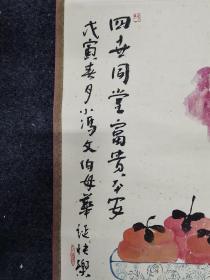 四世同堂富贵平安
戊寅春月小冯文伯母華诞快乐